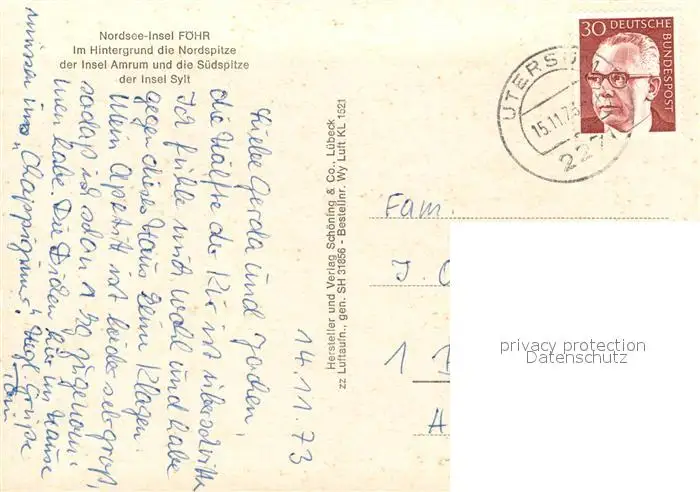 Nordsee-Insel FÖHR
Im Hintergrund die Nordspitze
der Insel Amrum und die Südspitze
der Insel Sylt
14.11.73
Liebe Gerda und Jochen,
die Hälfte der Kur ist überschritten
Ich fühle mich wohl und habe
gegen dieses Haus keine Klagen.
Mein Apetit ist leider sehr groß,
sodaß ich schon 1 kg zugenom-
men habe. Die Dicken hier im Hause
müssen ins "
Hzgl. Grüße
Toni
Hersteller und Verlag Schöning & Co., Lübeck
zz Luftaufn., gen. SH 31856 - Bestellnr. Wy Luft KL 1521
30 DEUTSCHE BUNDESPOST
UTERSUM
15.11.73
2271
Fam.
J.
1
privacy protection
Datenschutz